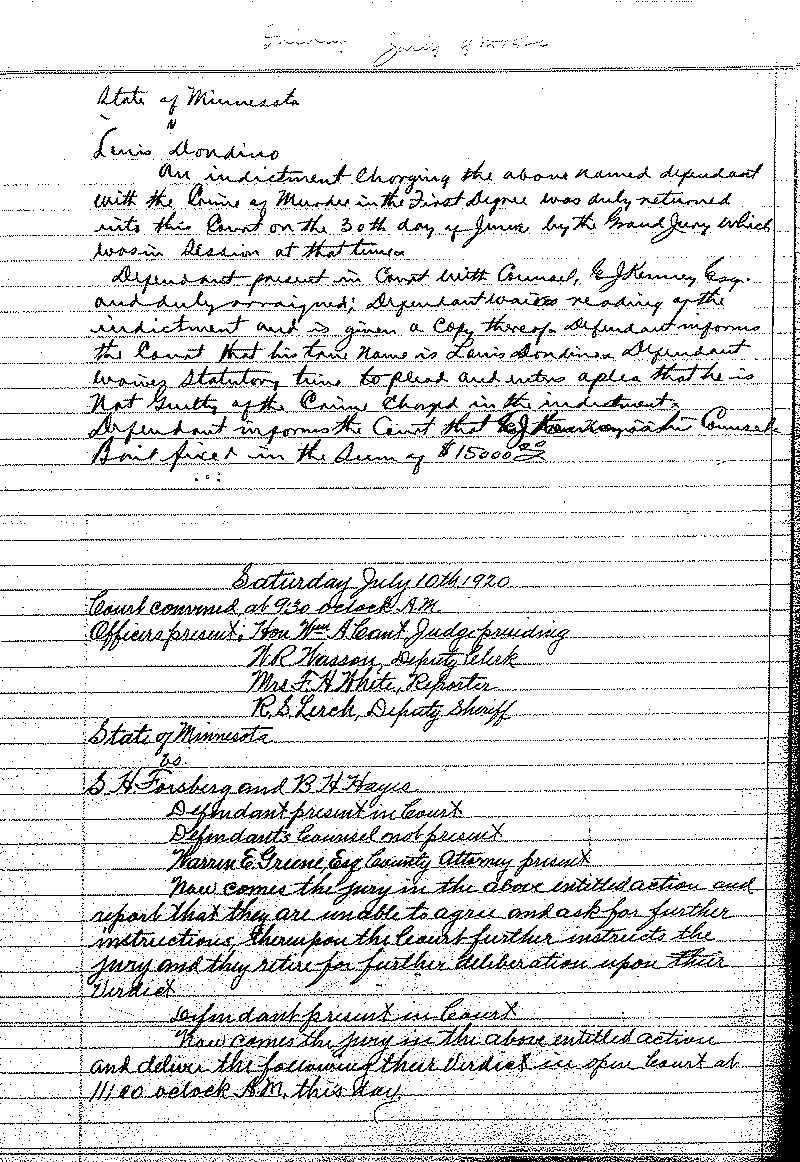 July 9th 1920
State of Minnesota
vs
Louis Dondino
An indictment Charging the above named defendant
with the Crime of Murder in the First Degree was duly returned
into this Court on the 30th day of June by the Grand Jury which
was in Session at that time.
Defendant present in Court with Counsel, E J Kenney Esq.
and duly arraigned; Defendant waives reading of the
indictment and is given a copy thereof. Defendant informs
the Court that his true name is Louis Dondino. Defendant
waives Statutory time to plead and enters a plea that he is
Not Guilty of the Crime Charged in the indictment.
Defendant informs the Court that E J Kenney is his Counsel.
Bail fixed in the Sum of $15000 00
Saturday July 10th 1920
Court convened at 9:30 oclock A.M.
Officers present; Hon Wm A Cant Judge presiding
W R Wasson, Deputy Clerk
Mrs F. H White, Reporter
R. S. Lerch, Deputy Sheriff
State of Minnesota
vs
S H Forsberg and B H Hayes
Defendant present in Court
Defendants Counsel not present
Warren E. Greene, Esq County Attorney present
Now comes the jury in the above entitled action and
report that they are unable to agree and ask for further
instructions, thereupon the Court further instructs the
jury and they retire for further deliberation upon their
Verdict
Defendant present in Court
Now comes the jury in the above entitled action
and deliver the following their Verdict in open Court at
11:00 oclock A.M. this day